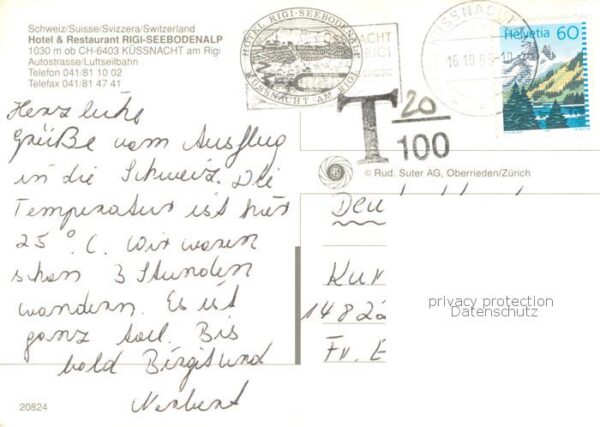 Schweiz/Suisse/Svizzera/Switzerland
Hotel & Restaurant RIGI-SEEBODENALP
1030 m ob CH-6403 KÜSSNACHT am Rigi
Autostrasse/Luftseilbahn
Telefon 041/81 10 02
Telefax 041/81 47 41
HOTEL RIGI-SEEBODENALP
KÜSSNACHT AM RIGI
KÜSSNACHT
Helvetia 60
T 20
100
© Rud. Suter AG, Oberrieden/Zürich
Herzliche
Grüße vom Ausflug
in die Schweiz. Die
Temperatur ist hier
25°C. Wir waren
schon 3 Stunden
wandern. Es ist
ganz toll. Bis
bald Birgit und
Norbert
Deu
Kur
14822
Fr. E
privacy protection
Datenschutz
20824